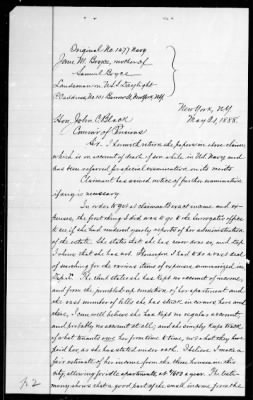 Original No. 1677 Navy
Jane M. Boyce, mother of
Samuel Boyce
Landsman on U.S.S. Daylight
P.O. address, No. 101 Barrow St, New York, N.Y.
New York, N.Y.
May 21, 1888.
Hon. John C. Black
Com'r of Pensions
Sir: I herewith return the papers in above claim,
which is on account of death of son while in U.S. Navy and
has been referred for special examination on its merits.
Claimant has waived notice of further examination
if any is necessary.
In order to get at claimant's real income and ex-
penses, the first thing I did was to go to the Surrogate's office
to see if she had rendered yearly reports of her administration
of the estate. She states that she has never done so, and
I that she has not. Thereupon I had to do a vast deal
of searching for the various items of expenses
She states she has kept no account of income,
and from the condition of her apartment and
the vast number of bills she has stuck in
I can well believe she has kept no regular account,
and probably no account at all; and she simply keeps track
of what tenants owe her from time to time, not what they have
paid her, as she has stated under oath. I believe I make a
fair estimate of her income from the three houses in this
city, allowing for idle apartments, at $600 a year. The testi-
mony shows that a good part of the small income from the
p. 2